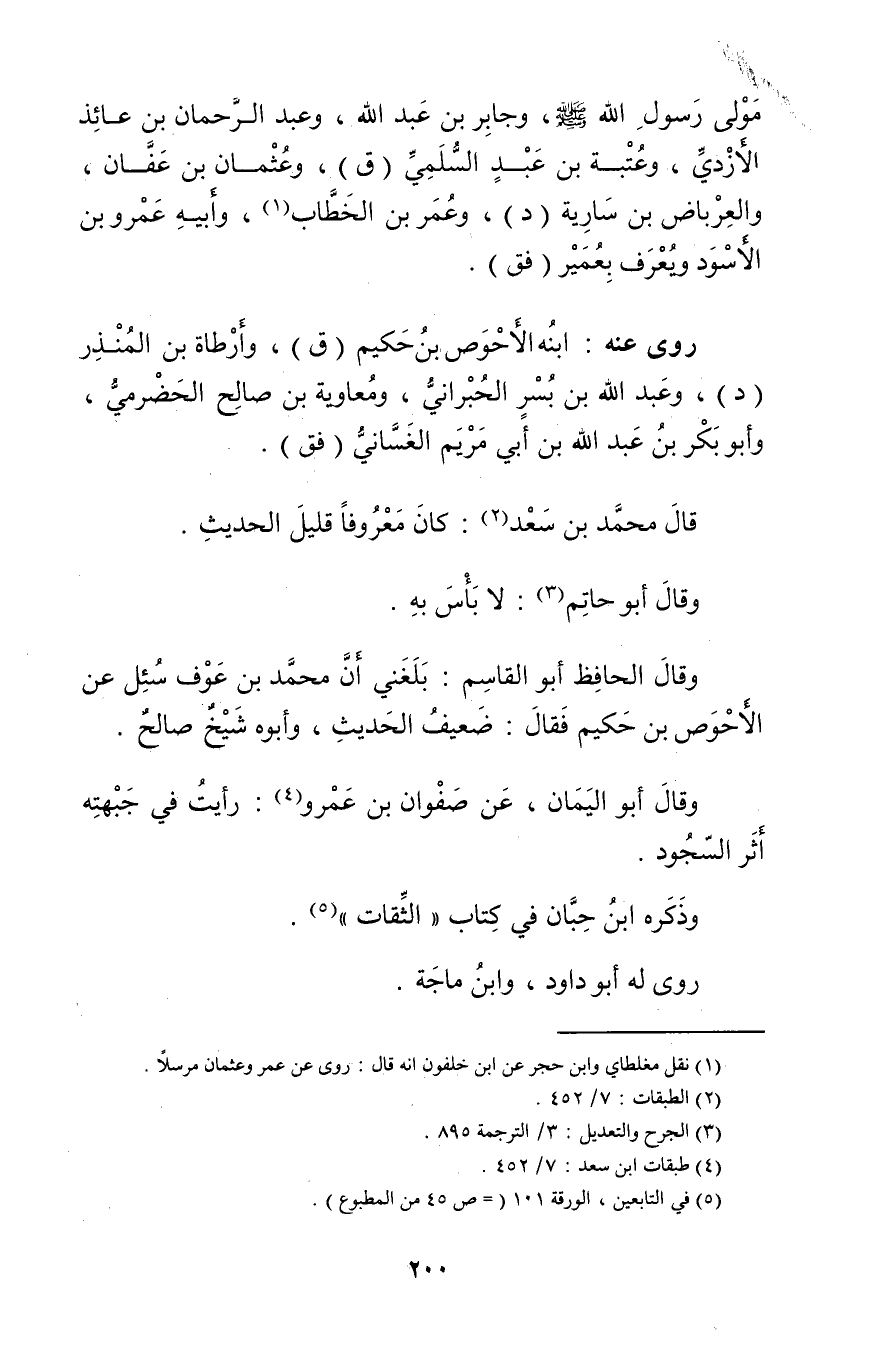 مَوْلى رَسول الله ﷺ ، وجابِر بن عَبد الله ، وعبد الـرَّحمان بن عـائِذ
الأَزْديِّ ، وعُتْبـــة بن عَبْــدٍ السُّلَمِيِّ ( ق ) ، وعُثْمــان بن عَفَّــان ،
والعِرْباض بن سَارِية ( د ) ، وعُمَر بن الخَطَّاب(١) ، وأَبيـهِ عَمْرو بن
الأَسْوَد ويُعْرَف بِعُمَيْر ( فق ) .
روى عنه : ابنُه الأَحْوَص بنُ حَكيم ( ق ) ، وأَرْطاة بن المُنْـذِر
( د ) ، وعَبد الله بن بُسْرٍ الحُبْرانيُّ ، ومُعاوية بن صالِح الحَضْرميُّ ،
وأبو بَكْر بنُ عَبد الله بن أَبي مَرْيَم الغَسَّانيُّ ( فق ) .
قالَ محمَّد بن سَعْد(٢) : كانَ مَعْرُوفاً قليلَ الحديثِ .
وقالَ أبو حاتِم(٣) : لا بَأْسَ بهِ .
وقالَ الحافِظ أبو القاسِم : بَلَغَني أَنَّ محمَّد بن عَوْف سُئِل عن
الأَحْوَص بن حَكيم فَقالَ : ضَعيفُ الحَديثِ ، وأبوه شَيْخٌ صالحٌ .
وقالَ أبو اليَمَان ، عَن صَفْوان بن عَمْرو(٤) : رأيتُ في جَبْهتِه
أَثَر السّجُود .
وذَكَره ابنُ حِبَّان في كِتاب « الثِّقات »(٥) .
روى له أبو داود ، وابنُ ماجَة .
(١) نقل مغلطاي وابن حجر عن ابن خلفون انه قال : روى عن عمر وعثمان مرسلاً .
(٢) الطبقات : ٧/ ٤٥٢ .
(٣) الجرح والتعديل : ٣/ الترجمة ٨٩٥ .
(٤) طبقات ابن سعد : ٧/ ٤٥٢ .
(٥) في التابعين ، الورقة ١٠١ ( = ص ٤٥ من المطبوع ) .
٢٠٠